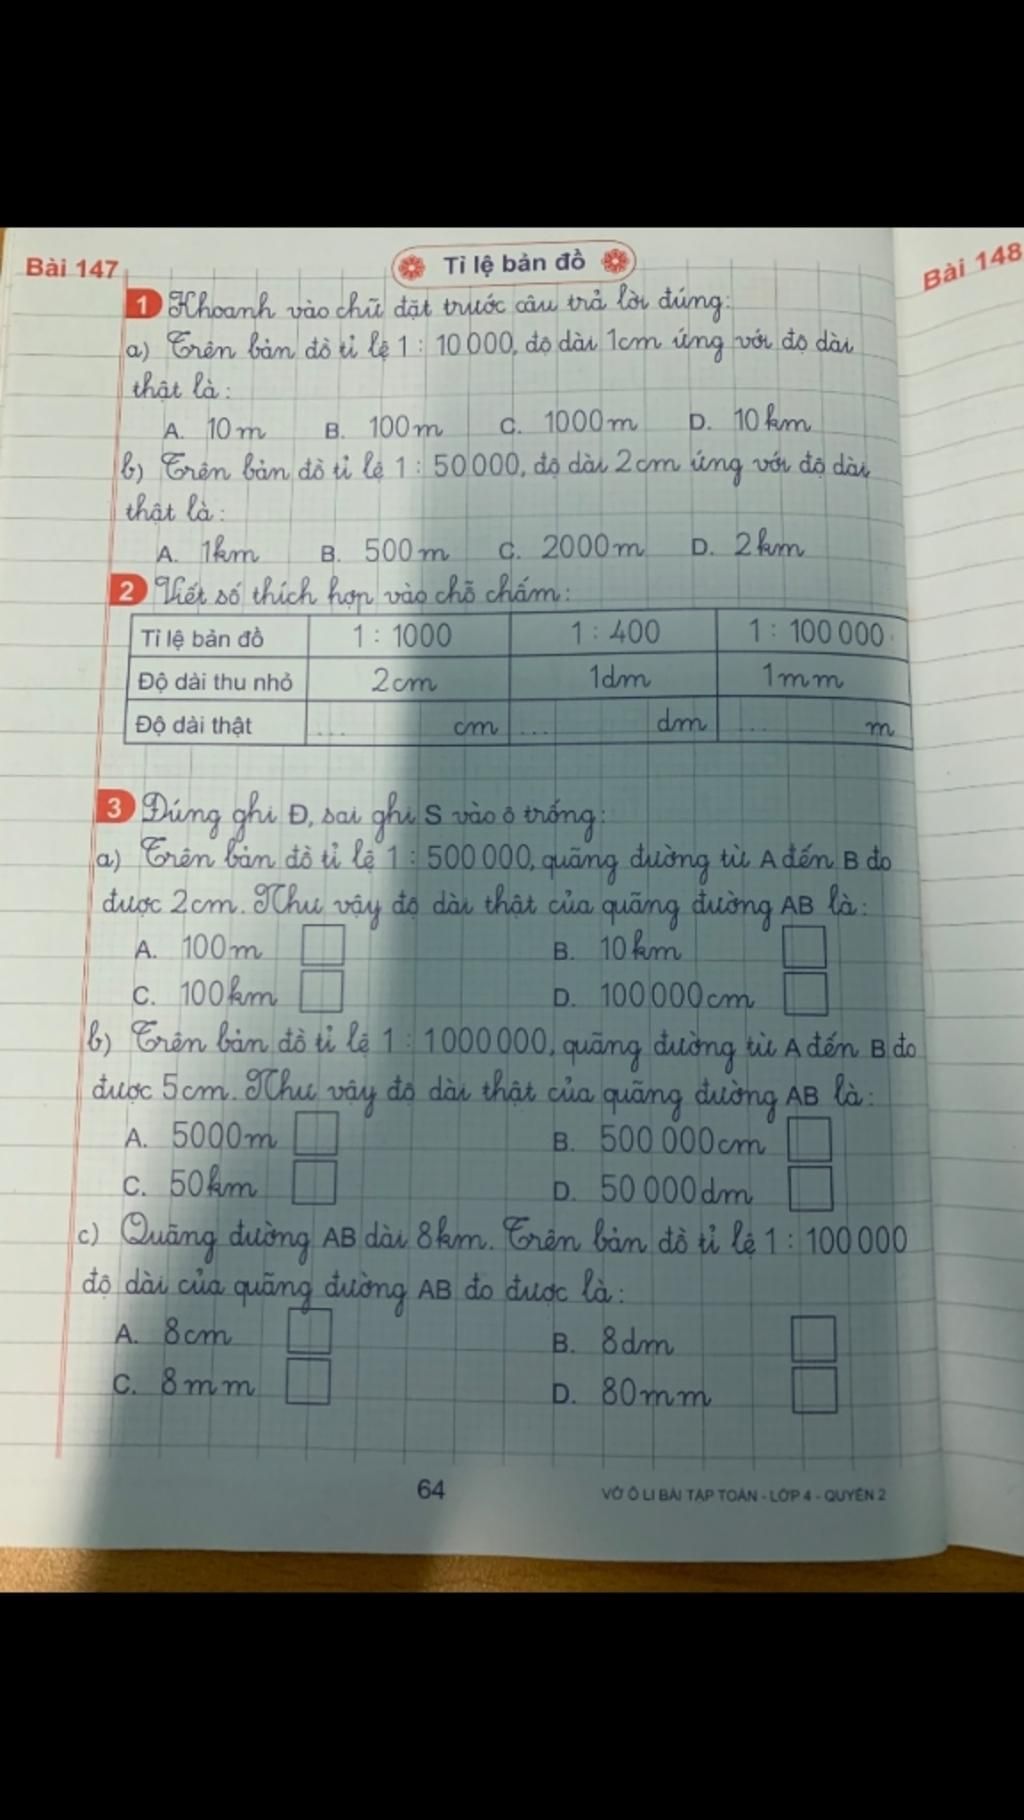 Bài 147
Tỉ lệ bản đồ
Bài 148
1 Khoanh vào chữ đặt trước câu trả lời đúng:
a) Trên bản đồ tỉ lệ 1 : 10 000, độ dài 1cm ứng với độ dài
thật là:
A. 10m B. 100m C. 1000m D. 10km
b) Trên bản đồ tỉ lệ 1 : 50 000, độ dài 2cm ứng với độ dài
thật là:
A. 1km B. 500m C. 2000m D. 2km
2 Viết số thích hợp vào chỗ chấm:
Tỉ lệ bản đồ 1 : 1000 1 : 400 1 : 100 000
Độ dài thu nhỏ 2cm 1dm 1mm
Độ dài thật ... cm ... dm ... m
3 Đúng ghi Đ, sai ghi S vào ô trống:
a) Trên bản đồ tỉ lệ 1 : 500 000, quãng đường từ A đến B đo
được 2cm. Như vậy độ dài thật của quãng đường AB là:
A. 100m B. 10km
C. 100km D. 100 000cm
b) Trên bản đồ tỉ lệ 1 : 1000 000, quãng đường từ A đến B đo
được 5cm. Như vậy độ dài thật của quãng đường AB là:
A. 5000m B. 500 000cm
C. 50km D. 50 000dm
c) Quãng đường AB dài 8km. Trên bản đồ tỉ lệ 1 : 100 000
độ dài của quãng đường AB đo được là:
A. 8cm B. 8dm
C. 8mm D. 80mm
64
VỞ Ô LI BÀI TẬP TOÁN - LỚP 4 - QUYỂN 2